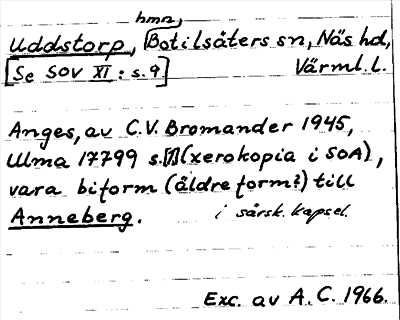 hmn,
Uddstorp, Botilsäters sn, Näs hd,
[Se SOV XI : s. 9] Värml. l.
Anges, av C.V. Bromander 1945,
Ulma 17799 s. (xerokopia i SOA),
vara biform (äldre form?) till
Anneberg.
i särsk. kapsel.
Exc. av A. C. 1966.